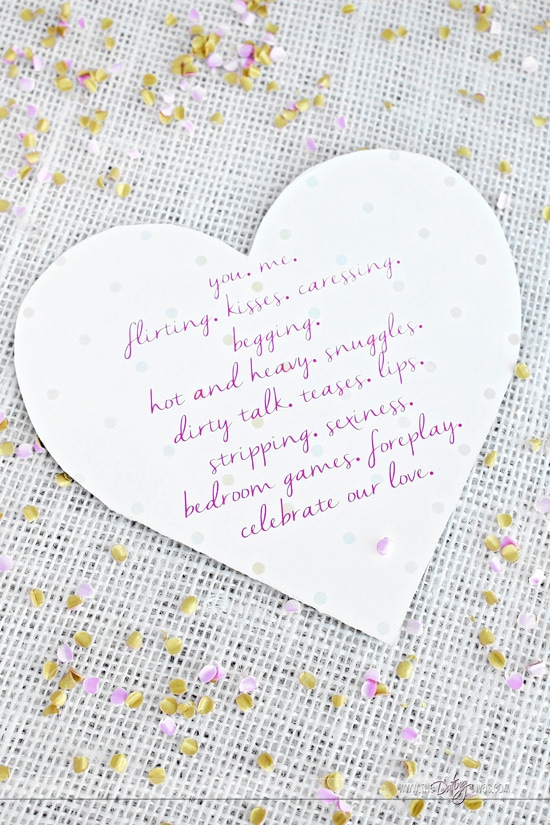 you. me.
flirting. kisses. caressing.
begging.
hot and heavy. snuggles.
dirty talk. teases. lips.
stripping. sexiness.
bedroom games. foreplay.
celebrate our love.
WWW.THEDatingDIVAS.COM